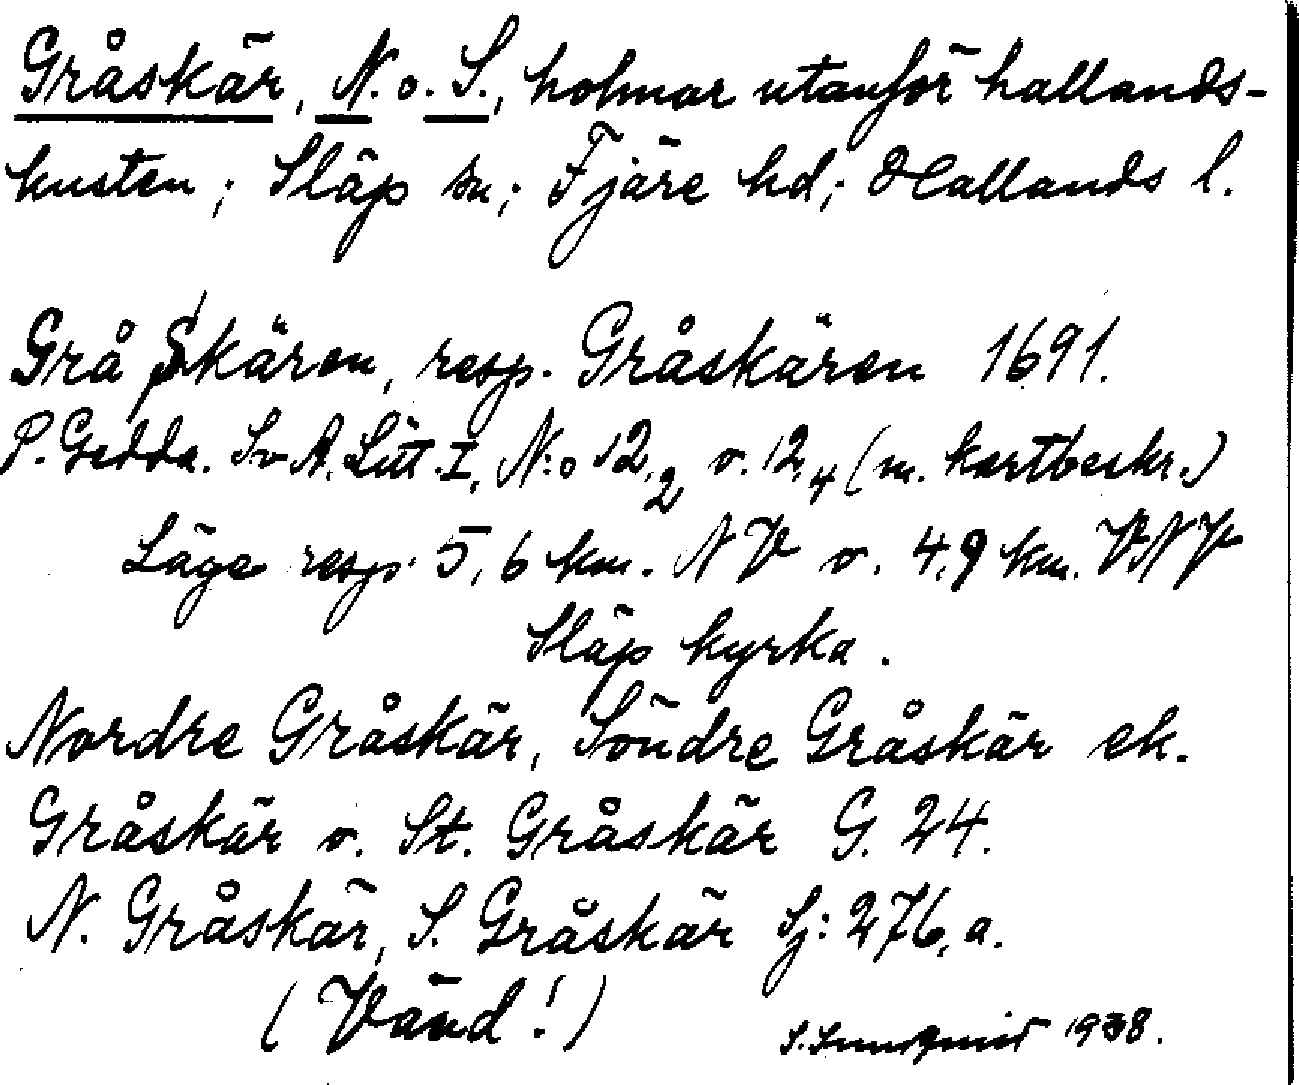 Gråskär, N. o. S., holmar utanför hallands-
kusten; Släp sn; Fjäre hd; Hallands l.
Grå Skären, resp. Gråskären 1691.
P. Gedda. Sv A. Litt. I, N:o 12,2 o. 12,4 (m. kartbeskr.)
Läge resp. 5,6 km. NV o. 4,9 km. VNV
Släp kyrka.
Nordre Gråskär, Söndre Gråskär ek.
Gråskär o. St. Gråskär G. 24.
N. Gråskär, S. Gråskär Sj: 276, a.
(Vänd!)
1938.